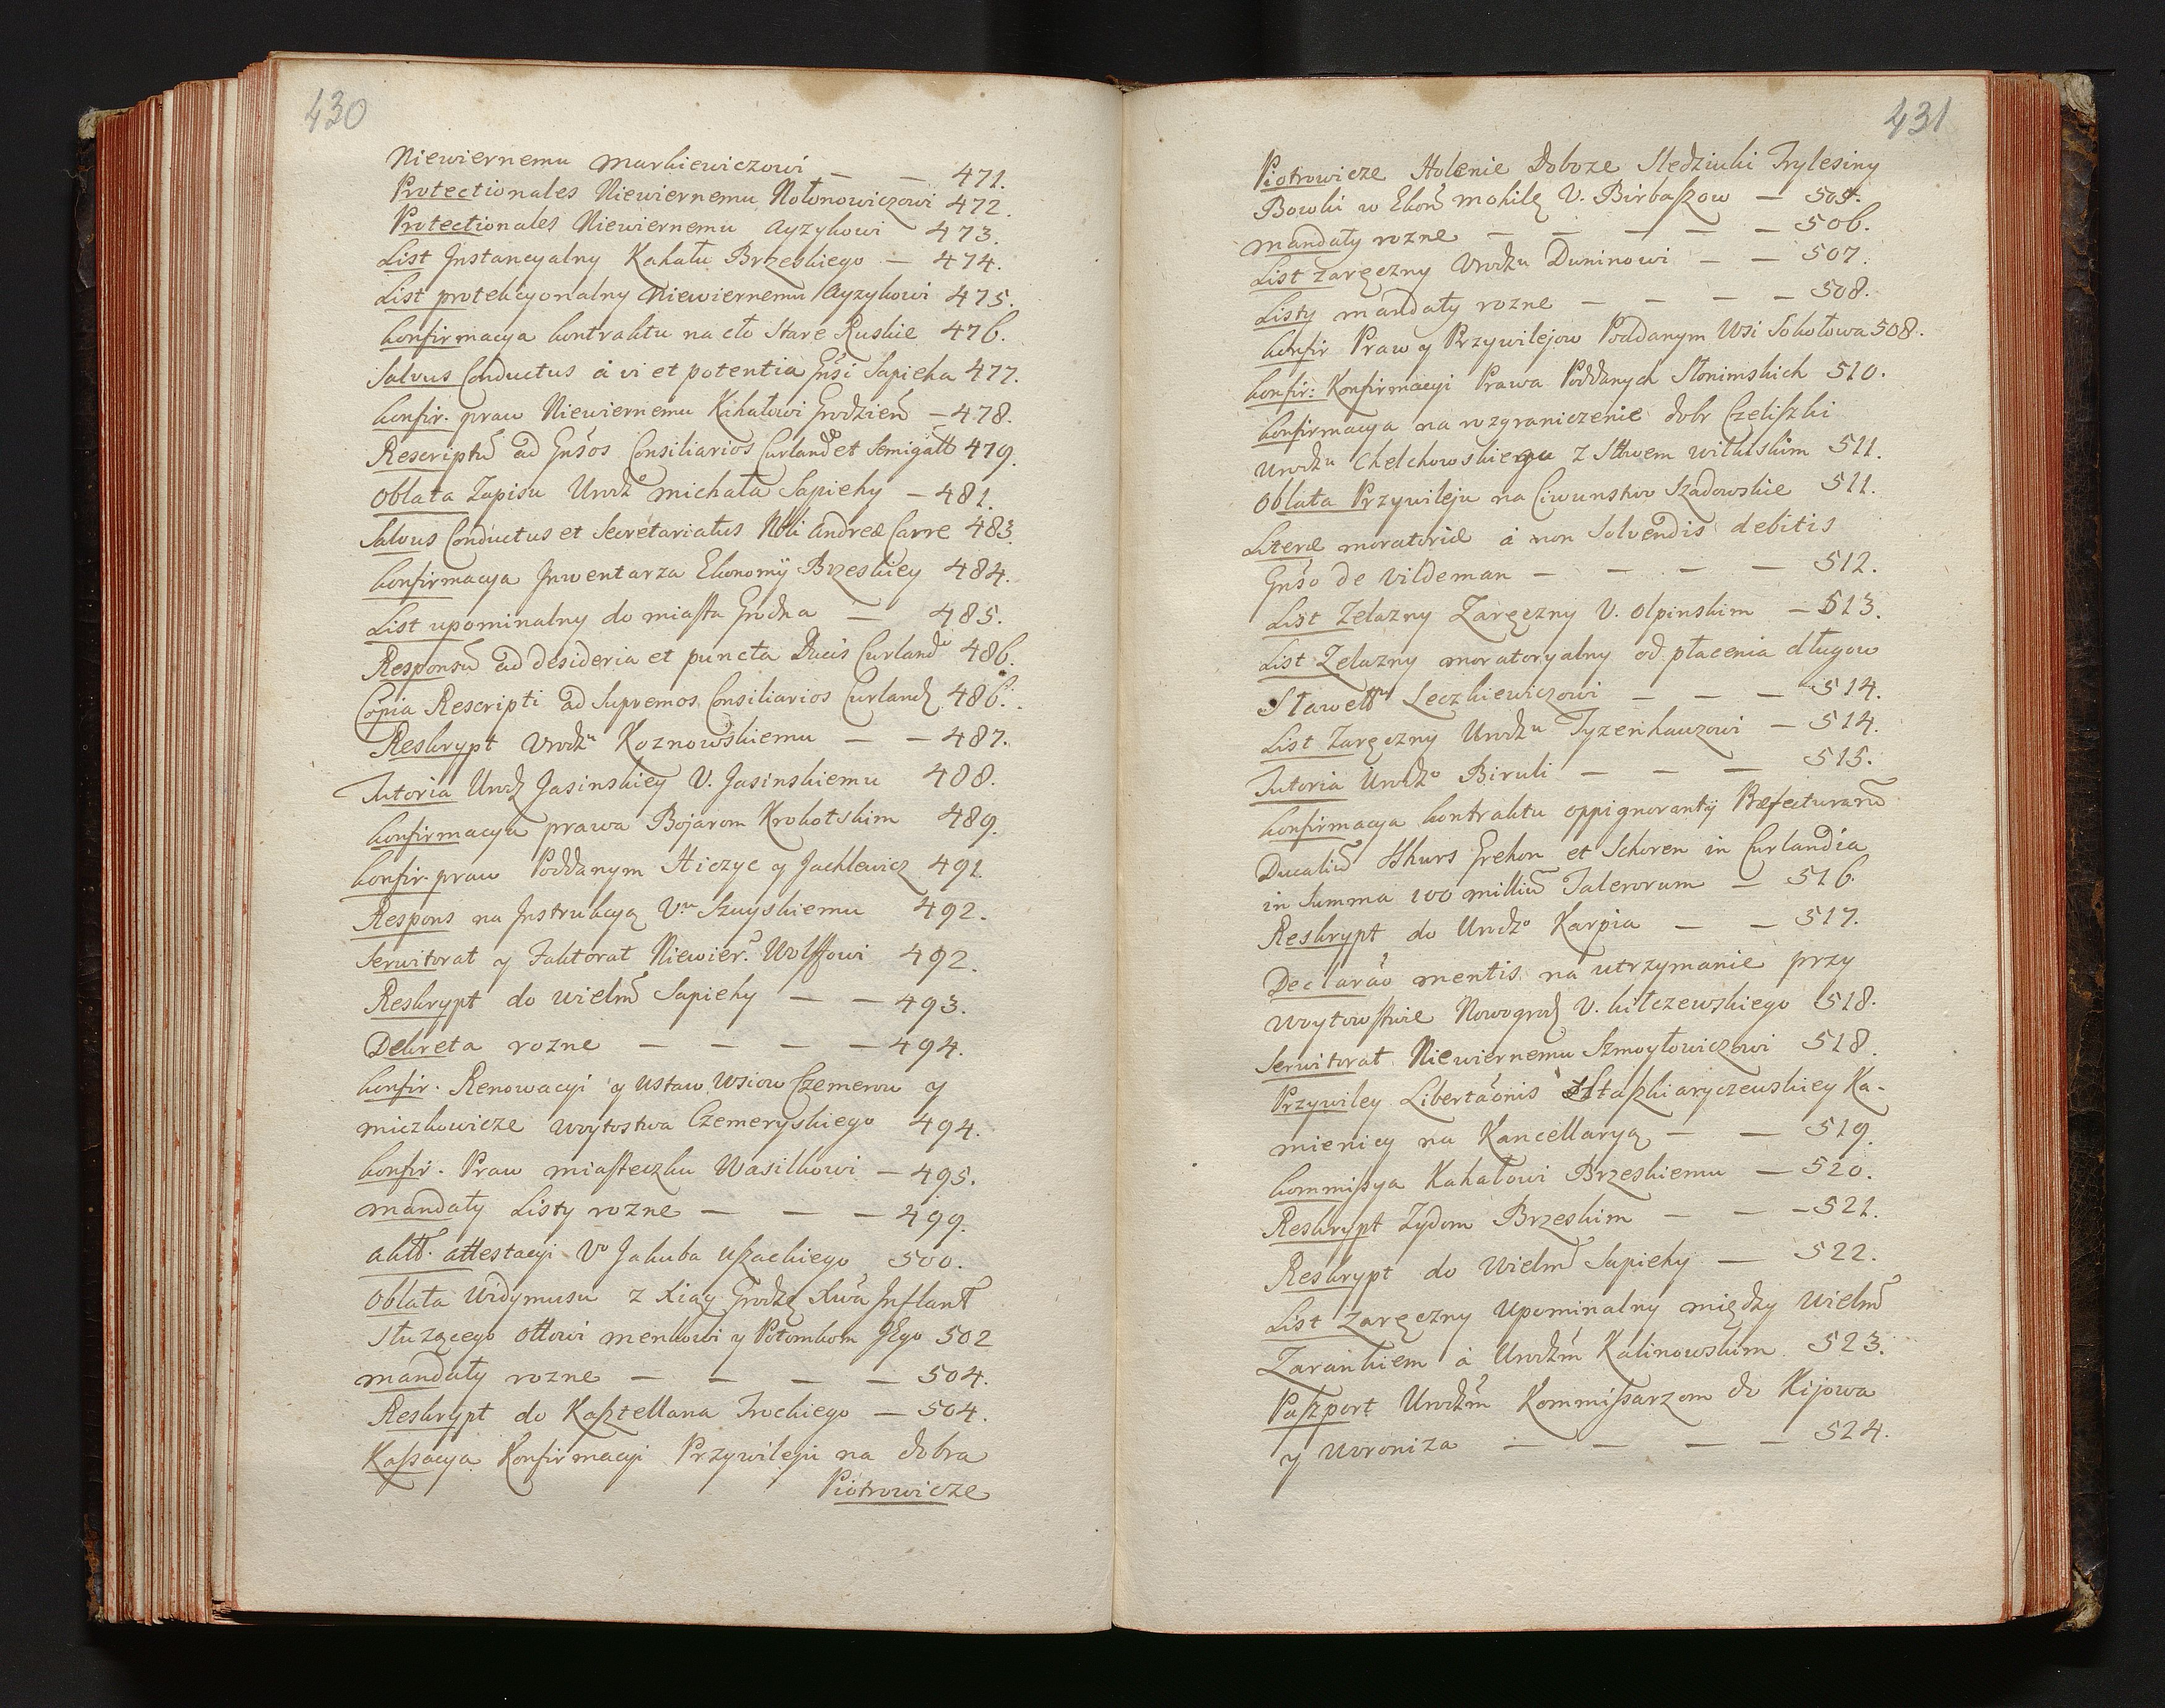 430
Niewiernemu Markiewiczowi — — 471.
Protectionales Niewiernemu Notonowiczowi 472.
Protectionales Niewiernemu Ayzykowi 473.
List Instancyalny Kahału Brzeskiego — 474.
List protekcyonalny Niewiernemu Ayzykowi 475.
konfirmacya kontraktu na cło Stare Ruskie 476.
Salvus Conductus à vi et potentia Gnsi Sapieha 477.
konfir. praw Niewiernemu Kahałowi Grodzień — 478.
Rescriptū ad Gnsos Consiliarios Curland et Semigall 479.
Oblata Zapisu Urodzo Michała Sapiehy — 481.
Salvus Conductus et Secretariatus Nbli Andreæ Carre 483.
konfirmacya Inwentarza Ekonomÿ Brzeskiey 484.
List upominalny do miasta Grodna — 485.
Responsū ad desideria et puncta Ducis Curland 486.
Copia Rescripti ad Supremos Consiliarios Curland 486.
Reskrypt Urodzu Koznowskiemu — — 487.
Tutoria Urodz Jasinskiey V. Jasinskiemu 488.
konfirmacya prawa Bojarom Krokotskim 489.
konfir. praw Poddanym Hiczyc y Jachlewicz 491.
Respons na Instrukcyą Vu Szuyskiemu 492.
Serwitorat y Faktorat Niewier. Wolffowi 492.
Reskrypt do Wielm Sapiehy — — 493.
Dekreta rozne — — — — 494.
konfir. Renowacyi y Ustaw Wsiow Czemerow y
miczkowicze Woytostwa Czemeryskiego 494.
konfir. Praw miasteczku Wasilkowi — 495.
mandaty Listy rozne — — — 499.
aktt. attestacyi Vo Jakuba Uszackiego 500.
Oblata Widymusu z Xiąg Grodzę Xwa Inflant
służącego Ottowi menkowi y Potomkom Jego 502
mandaty rozne — — — — 504.
Reskrypt do Kasztellana Trockiego — 504.
Kassacya Konfirmacyi Przywileju na dobra
Piotrowicze
431
Piotrowicze Holenie Doboze Sledziuki Trylesiny
Bowki w Ekoń Mohilę V. Birbaszow — 505.
mandaty rozne — — — — — 506.
List zaręczny Urodzu Duninowi — — 507.
Listy mandaty rozne — — — — 508.
konfir Praw y Przywilejow Poddanym Wsi Sokołowa 508.
konfir: Konfirmacyi Prawa Poddanych Słonimskich 510.
konfirmacya na rozgraniczenie dobr Czeliszki
Urodzu Chelchowskiego z Sttwem wilkiskim 511.
Oblata Przywileju na Ciwunstwo Szadowskie 511.
Literæ moratoriæ à non Solvendis debitis
Gnso de Vildeman — — — — 512.
List Zelazny Zaręczny V. Olpinskim — 513.
List Zelazny moratoryalny od płacenia długow
Sławett Leczkiewiczowi — — — 514.
List Zaręczny Urodzu Tyzenhauzowi — 514.
Tutoria Urodzo Biruli — — — 515.
konfirmacya kontraktu oppignorantÿ Præfecturarū
Ducaliū Ekhurs Grehon et Schoren in Curlandia
in Summa 100 milliū Talerorum — 516.
Reskrypt do Urodzo Karpia — — 517.
Declarao mentis na utrzymanie przy
Woytowstwie Nowogrodz V. kitczewskiego 518.
Serwitorat Niewiernemu Szmoyłowiczowi 518.
Przywiley Libertaonis Sztaszkiaryczewskiey Ka-
mienicy na Kancellaryą — — 519.
kommissya Kahałowi Brzeskiemu — 520.
Reskrypt Zydom Brzeskim — — — 521.
Reskrypt do Wielm Sapiehy — 522.
List Zaręczny Upominalny między Wielm
Zarankiem à Urodzm Kalinowskim 523.
Paszport Urodzm Kommissarzom do Kijowa
y Woroniza — — — — 524.